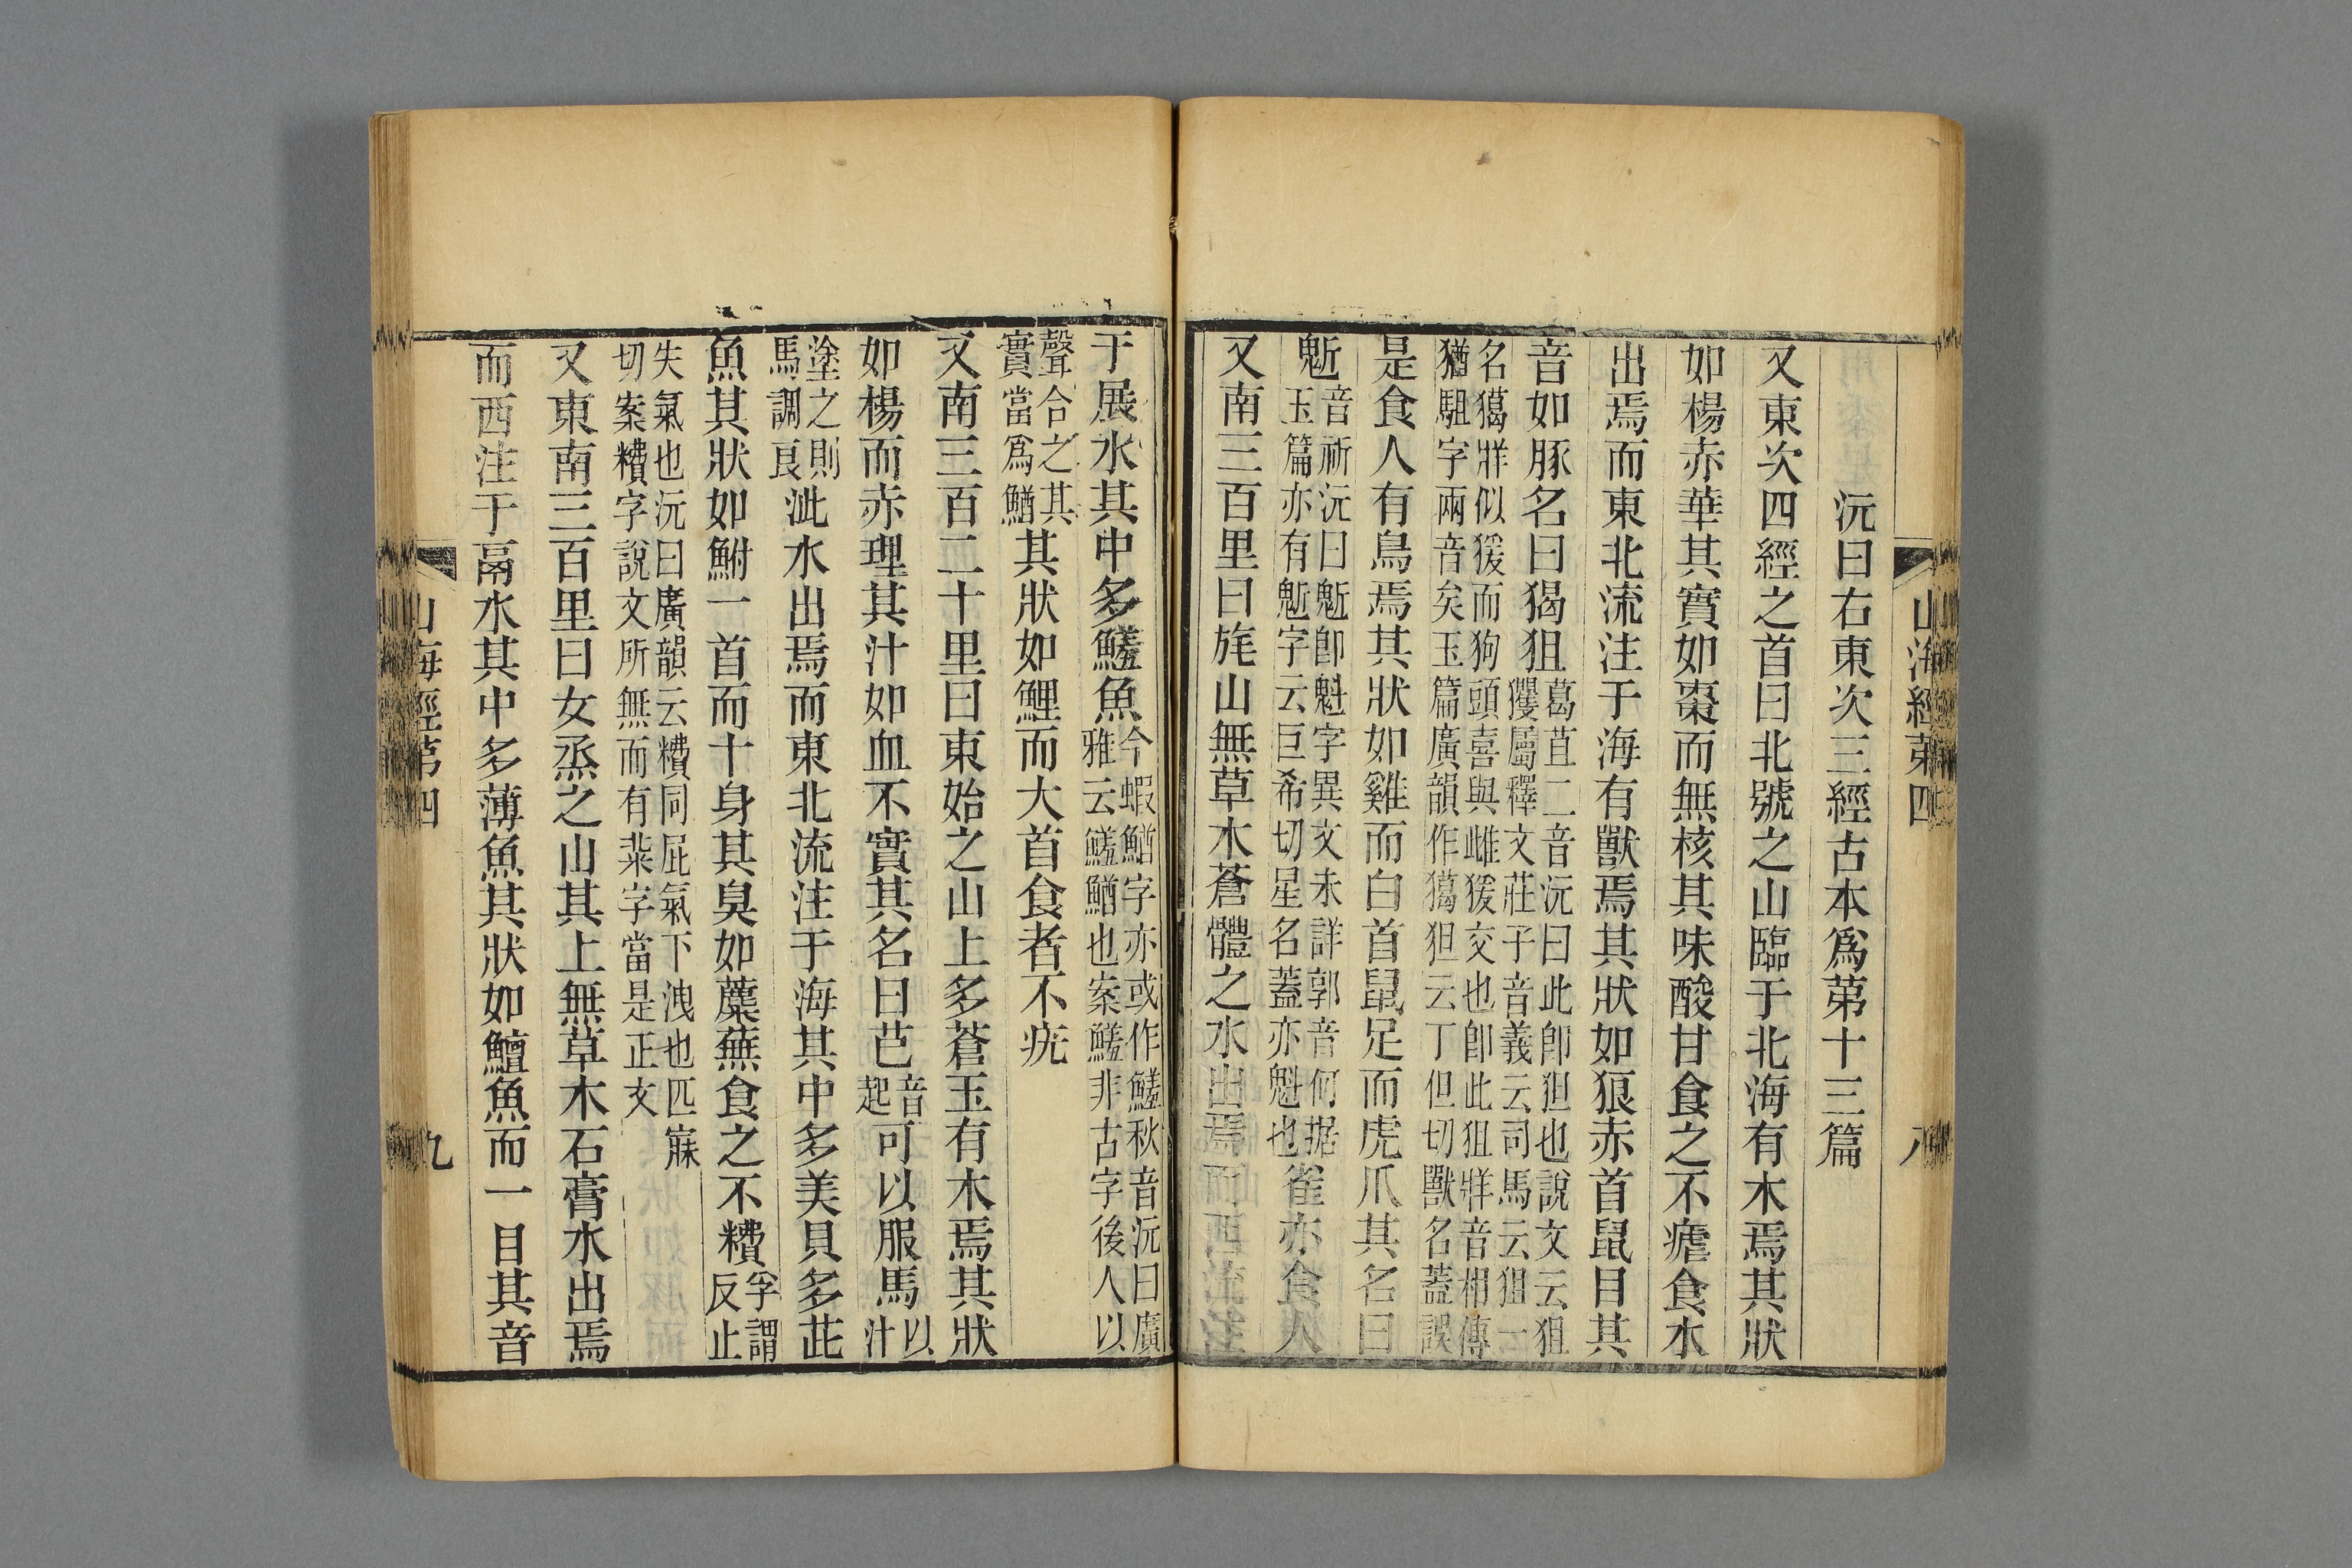 山海經第四 八
沅曰右東次三經古本爲第十三篇
又東次四經之首曰北號之山臨于北海有木焉其狀
如楊赤華其實如棗而無核其味酸甘食之不瘧食水
出焉而東北流注于海有獸焉其狀如狼赤首鼠目其
音如豚名曰猲狙葛苴二音沅曰此卽狚也說文云狙
玃屬釋文莊子音義云司馬云狙一
名獦牂似猨而狗頭喜與雌猨交也卽此狙牂音相傳
猶駔字兩音矣玉篇廣韻作獦狚云丁但切獸名蓋誤
是食人有鳥焉其狀如雞而白首鼠足而虎爪其名曰
鬿音祈沅曰鬿卽魁字異文未詳郭音何据
玉篇亦有鬿字云巨希切星名蓋亦魁也雀亦食人
又南三百里曰旄山無草木蒼體之水出焉而西流注
于展水其中多鱃魚今蝦鰌字亦或作鱃秋音沅曰廣
雅云鱃鰌也案鱃非古字後人以
聲合之其
實當爲鰌其狀如鯉而大首食者不疣
又南三百二十里曰東始之山上多蒼玉有木焉其狀
如楊而赤理其汁如血不實其名曰芑音
起可以服馬以
汁
塗之則
馬調良泚水出焉而東北流注于海其中多美貝多茈
魚其狀如鮒一首而十身其臭如蘪蕪食之不䊧孚謂
反止
失氣也沅曰廣韻云䊧同屁氣下洩也匹寐
切案䊧字說文所無而有䉾字當是正文
又東南三百里曰女烝之山其上無草木石膏水出焉
而西注于鬲水其中多薄魚其狀如鱣魚而一目其音
山海經第四 九